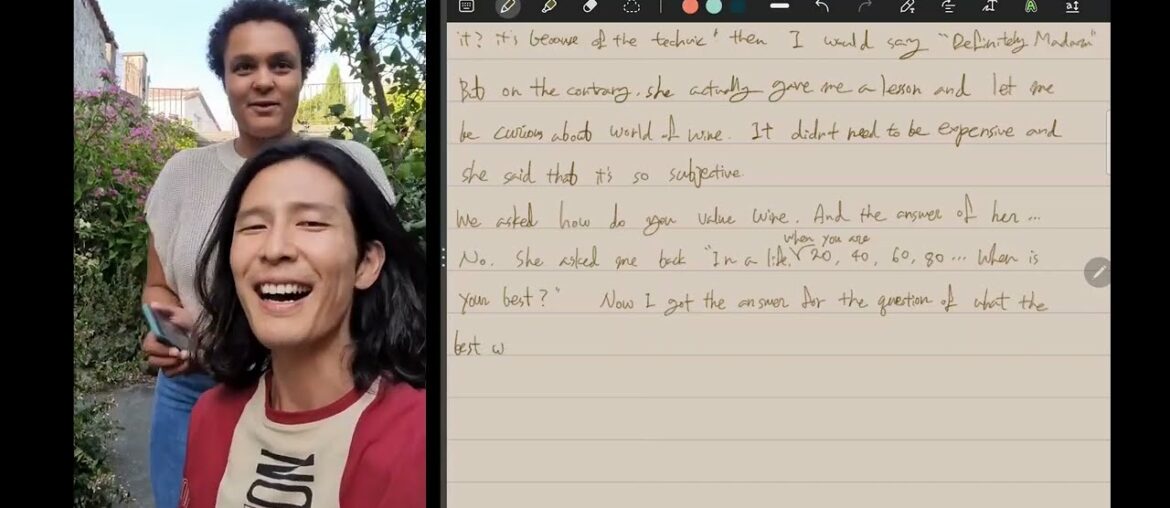 ION
it? it's because of the technic' then I would say "Definitely Madam"
But on the contrary, she actually gave me a lesson and let me
be curious about world of wine. It didn't need to be expensive and
she said that it's so subjective.
We asked how do you value wine. And the answer of her...
when you are
No. She asked me back "In a life, 20, 40, 60, 80... When is
your best?" Now I got the answer for the question of what the
best w